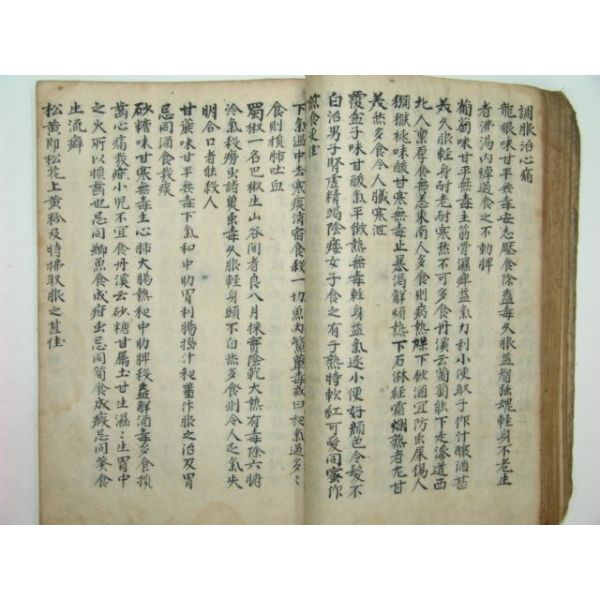 調服治心痛
龍眼味甘平無毒安志壓食除蠱毒久服益智強魂輕身不老生
者沸湯內焯過食之不動脾
葡萄味甘平無毒主筋骨濕痺益氣力利小便取子作汁釀酒甚
美久服輕身耐老耐寒然不可多食丹溪云葡萄能下走滲道西
北人稟厚食無恙東南人多食則病熱
獼猴桃味酸甘寒無毒止暴渴解煩熱下石淋經霜爛熟者尤甘
美然多食令人臟寒泄
覆盆子味甘酸氣平微熱無毒輕身益氣逐小便好顏色令髮不
白治男子腎虛精竭陰痿女子食之有子熟時軟紅可愛同蜜作
煎食更佳
下氣溫中去寒痰消宿食殺一切魚肉鱉蕈毒或曰和氣過多〻
食則損肺吐血
蜀椒一名巴椒生山谷間者良八月採實陰乾大熱有毒除六腑
冷氣殺癆虫諸魚虫毒久服輕身頭不白然多食則令人乏氣失
明合口者能殺人
甘蔗味甘平無毒下氣和中助胃利腸搗汁和薑汁服之治反胃
忌同酒食發痰
砂糖味甘寒無毒主心肺大腸熱和中助脾殺蠱解酒毒多食損
齒心痛發疳小兒不宜食丹溪云砂糖甘屬土甘生濕〻生胃中
之火所以損齒也忌同鯽魚食成疳虫忌同筍食成痰忌同葵食
生流癖
松黃即松花上黃粉及時拂取服之甚佳